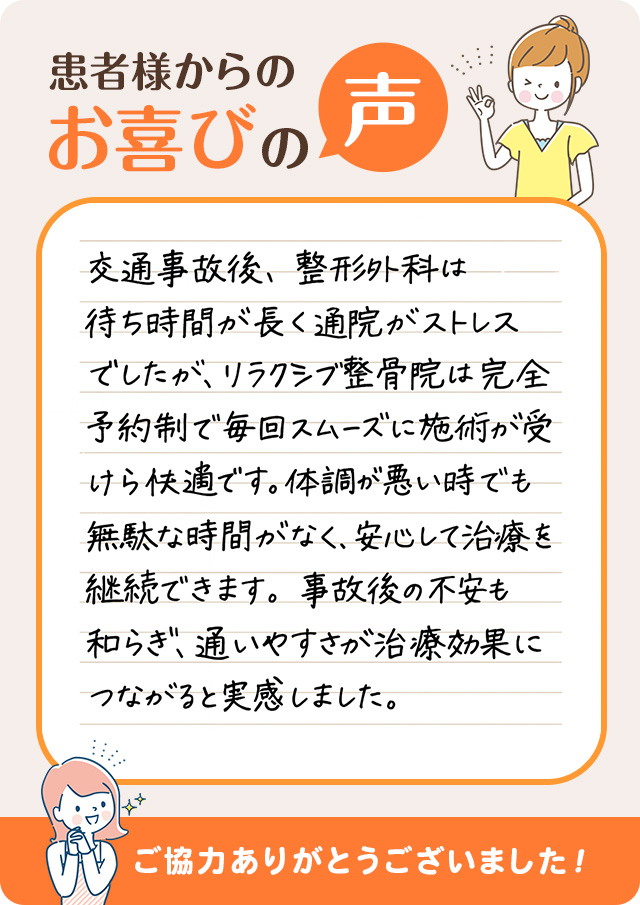 患者様からの
お喜びの声
交通事故後、整形外科は
待ち時間が長く通院がストレス
でしたが、リラクシブ整骨院は完全
予約制で毎回スムーズに施術が受
けら快適です。体調が悪い時でも
無駄な時間がなく、安心して治療を
継続できます。事故後の不安も
和らぎ、通いやすさが治療効果に
つながると実感しました。
ご協力ありがとうございました！